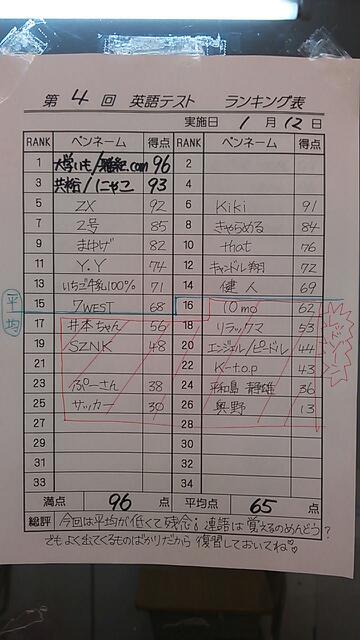 第 4 回 英語テスト ランキング表
実施日 1 月 12 日
RANK ペンネーム 得点 RANK ペンネーム 得点
1 96 2
3 93 4
5 ZX 92 6 Kiki 91
7 2号 85 8 きゃらめる 84
9 まゆげ 82 10 that 76
11 Y.Y 74 12 キャンドル翔 72
13 いちご牛乳100% 71 14 健人 69
15 7WEST 68 16 10mo 62
平均
17 井本ちゃん 56 18 リラックマ 53
19 SZNK 48 20 エンジェル/ピードル 44
21 22 K-t.o.p 43
23 ぷーさん 38 24 平和島 静雄 36
25 サッカー 30 26 奥野 13
27 28
29 30
31 32
33 34
満点 96 点 平均点 65 点
総評 今回は平均が低くて残念! 連語は覚えるのめんどう?
でもよく出てくるものばかりだから復習しておいてね♡